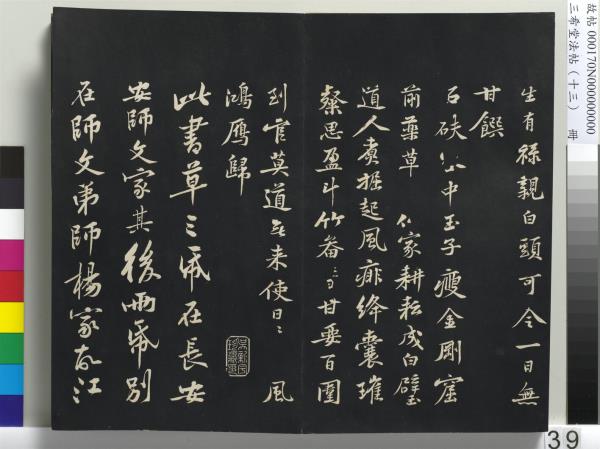 故帖 000170N000000000
三希堂法帖(十三) 冊
生有祿親白頭可令一日無
甘饌
石砆谷中玉子瘦金剛窟
前藥草 家耕耘成白璧
道人煮掘起風痱絳囊璀
璨思盈斗竹畚 甘要百圍
到官莫道無來使日日 風
鴻雁歸
此書草三帋在長安
安師文家其後兩帋別
在師文弟師楊家故江
39